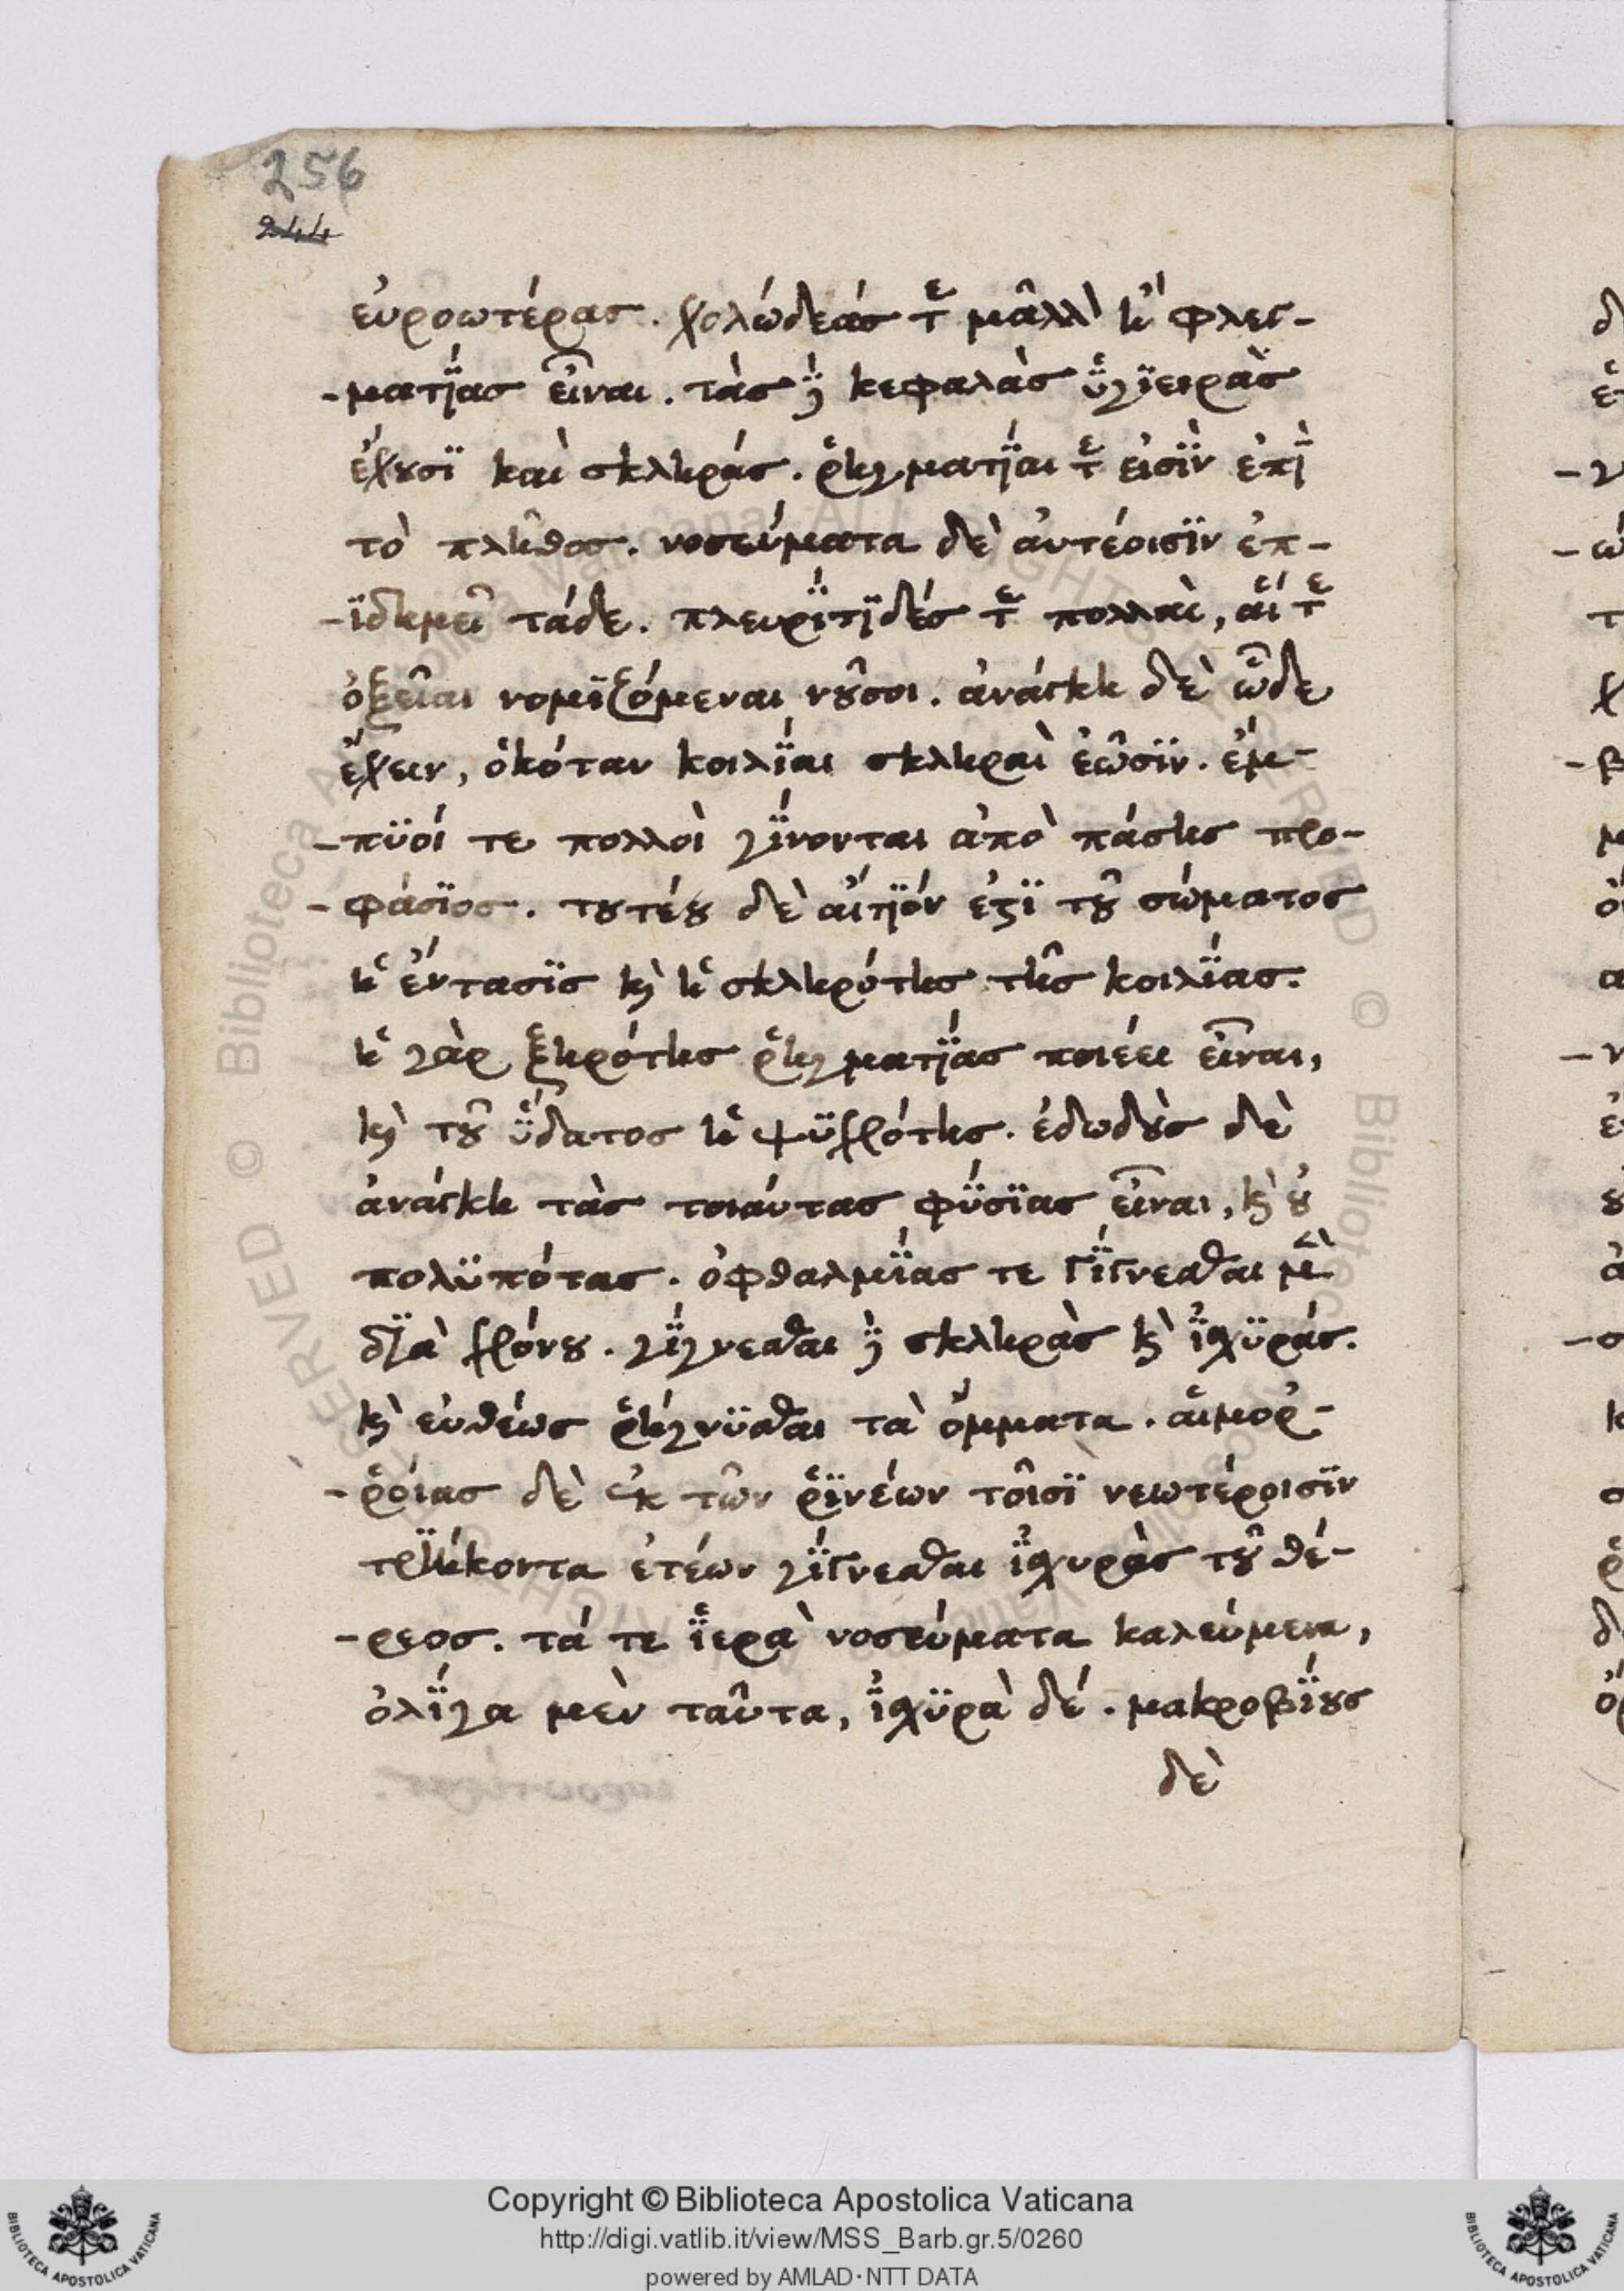 256
244
εὐροωτέρας. χολώδεάς τε μᾶλλον ἢ φλεγ-
-ματΐας εἶναι. τὰς δὲ κεφαλὰς ὑγϊειρὰς
ἔχουσϊ καὶ σκληράς. ῥηγματΐαι τέ εἰσϊν ἐπΐ
τὸ πλῆθος. νοσεύματα δὲ αὐτέοισϊν ἐπ-
-ϊδημεῖ τάδε. πλευρΐτϊδές τε πολλαὶ, αἵ τε
ὀξεῖαι νομϊζόμεναι νοῦσοι. ἀνάγκη δὲ ὧδε
ἔχειν, ὁκόταν κοιλΐαι σκληραὶ ἐῶσϊν. ἔμ-
-πϋοί τε πολλοὶ γΐνονται ἀπὸ πάσης προ-
-φάσϊος. τουτέου δὲ αἴτϊόν ἐστϊ τοῦ σώματος
ἡ ἔντασϊς καὶ ἡ σκληρότης τῆς κοιλΐας.
ἡ γὰρ ξηρότης ῥηγματΐας ποιέει εἶναι,
καὶ τοῦ ὕδατος ἡ ψϋχρότης. ἐδωδοὺς δὲ
ἀνάγκη τὰς τοιάυτας φΰσϊας εἶναι, καὶ οὐ
πολϋπότας. ὀφθαλμΐας τε γΐγνεσθαι μὲν
δϊὰ χρόνου. γΐγνεσθαι δὲ σκληρὰς καὶ ἰσχϋράς.
καὶ εὐθέως ῥήγνϋσθαι τὰ ὄμματα. αἱμοῤ-
-ῥοίας δὲ ἐκ τῶν ῥϊνέων τοῖσϊ νεωτέροισϊν
τρϊήκοντα ἐτέων γΐγνεσθαι ἰσχυρὰς τοῦ θέ-
-ρεος. τά τε ἱερὰ νοσεύματα καλεύμενα,
ὀλΐγα μὲν ταῦτα, ἰσχϋρὰ δέ. μακροβΐους
δὲ
Copyright © Biblioteca Apostolica Vaticana
http://digi.vatlib.it/view/MSS_Barb.gr.5/0260
powered by AMLAD·NTT DATA